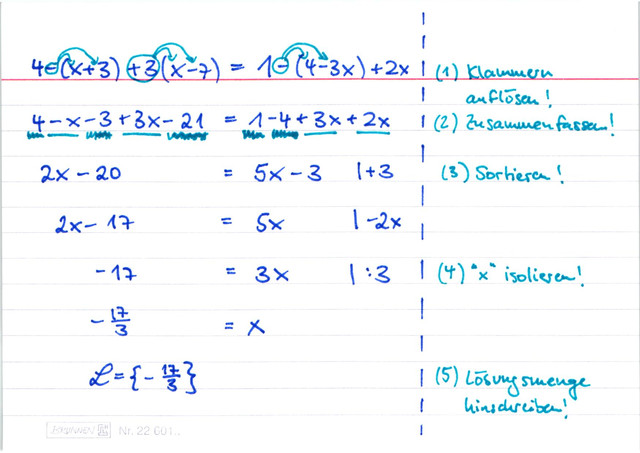 4-(x+3)+3(x-7) = 1-(4-3x)+2x (1) Klammern
auflösen!
4-x-3+3x-21 = 1-4+3x+2x (2) Zusammenfassen!
2x-20 = 5x-3 |+3 (3) Sortieren!
2x-17 = 5x |-2x
-17 = 3x |:3 (4) "x" isolieren!
-17/3 = x
L={-17/3} (5) Lösungsmenge
hinschreiben!
Nr. 22 601